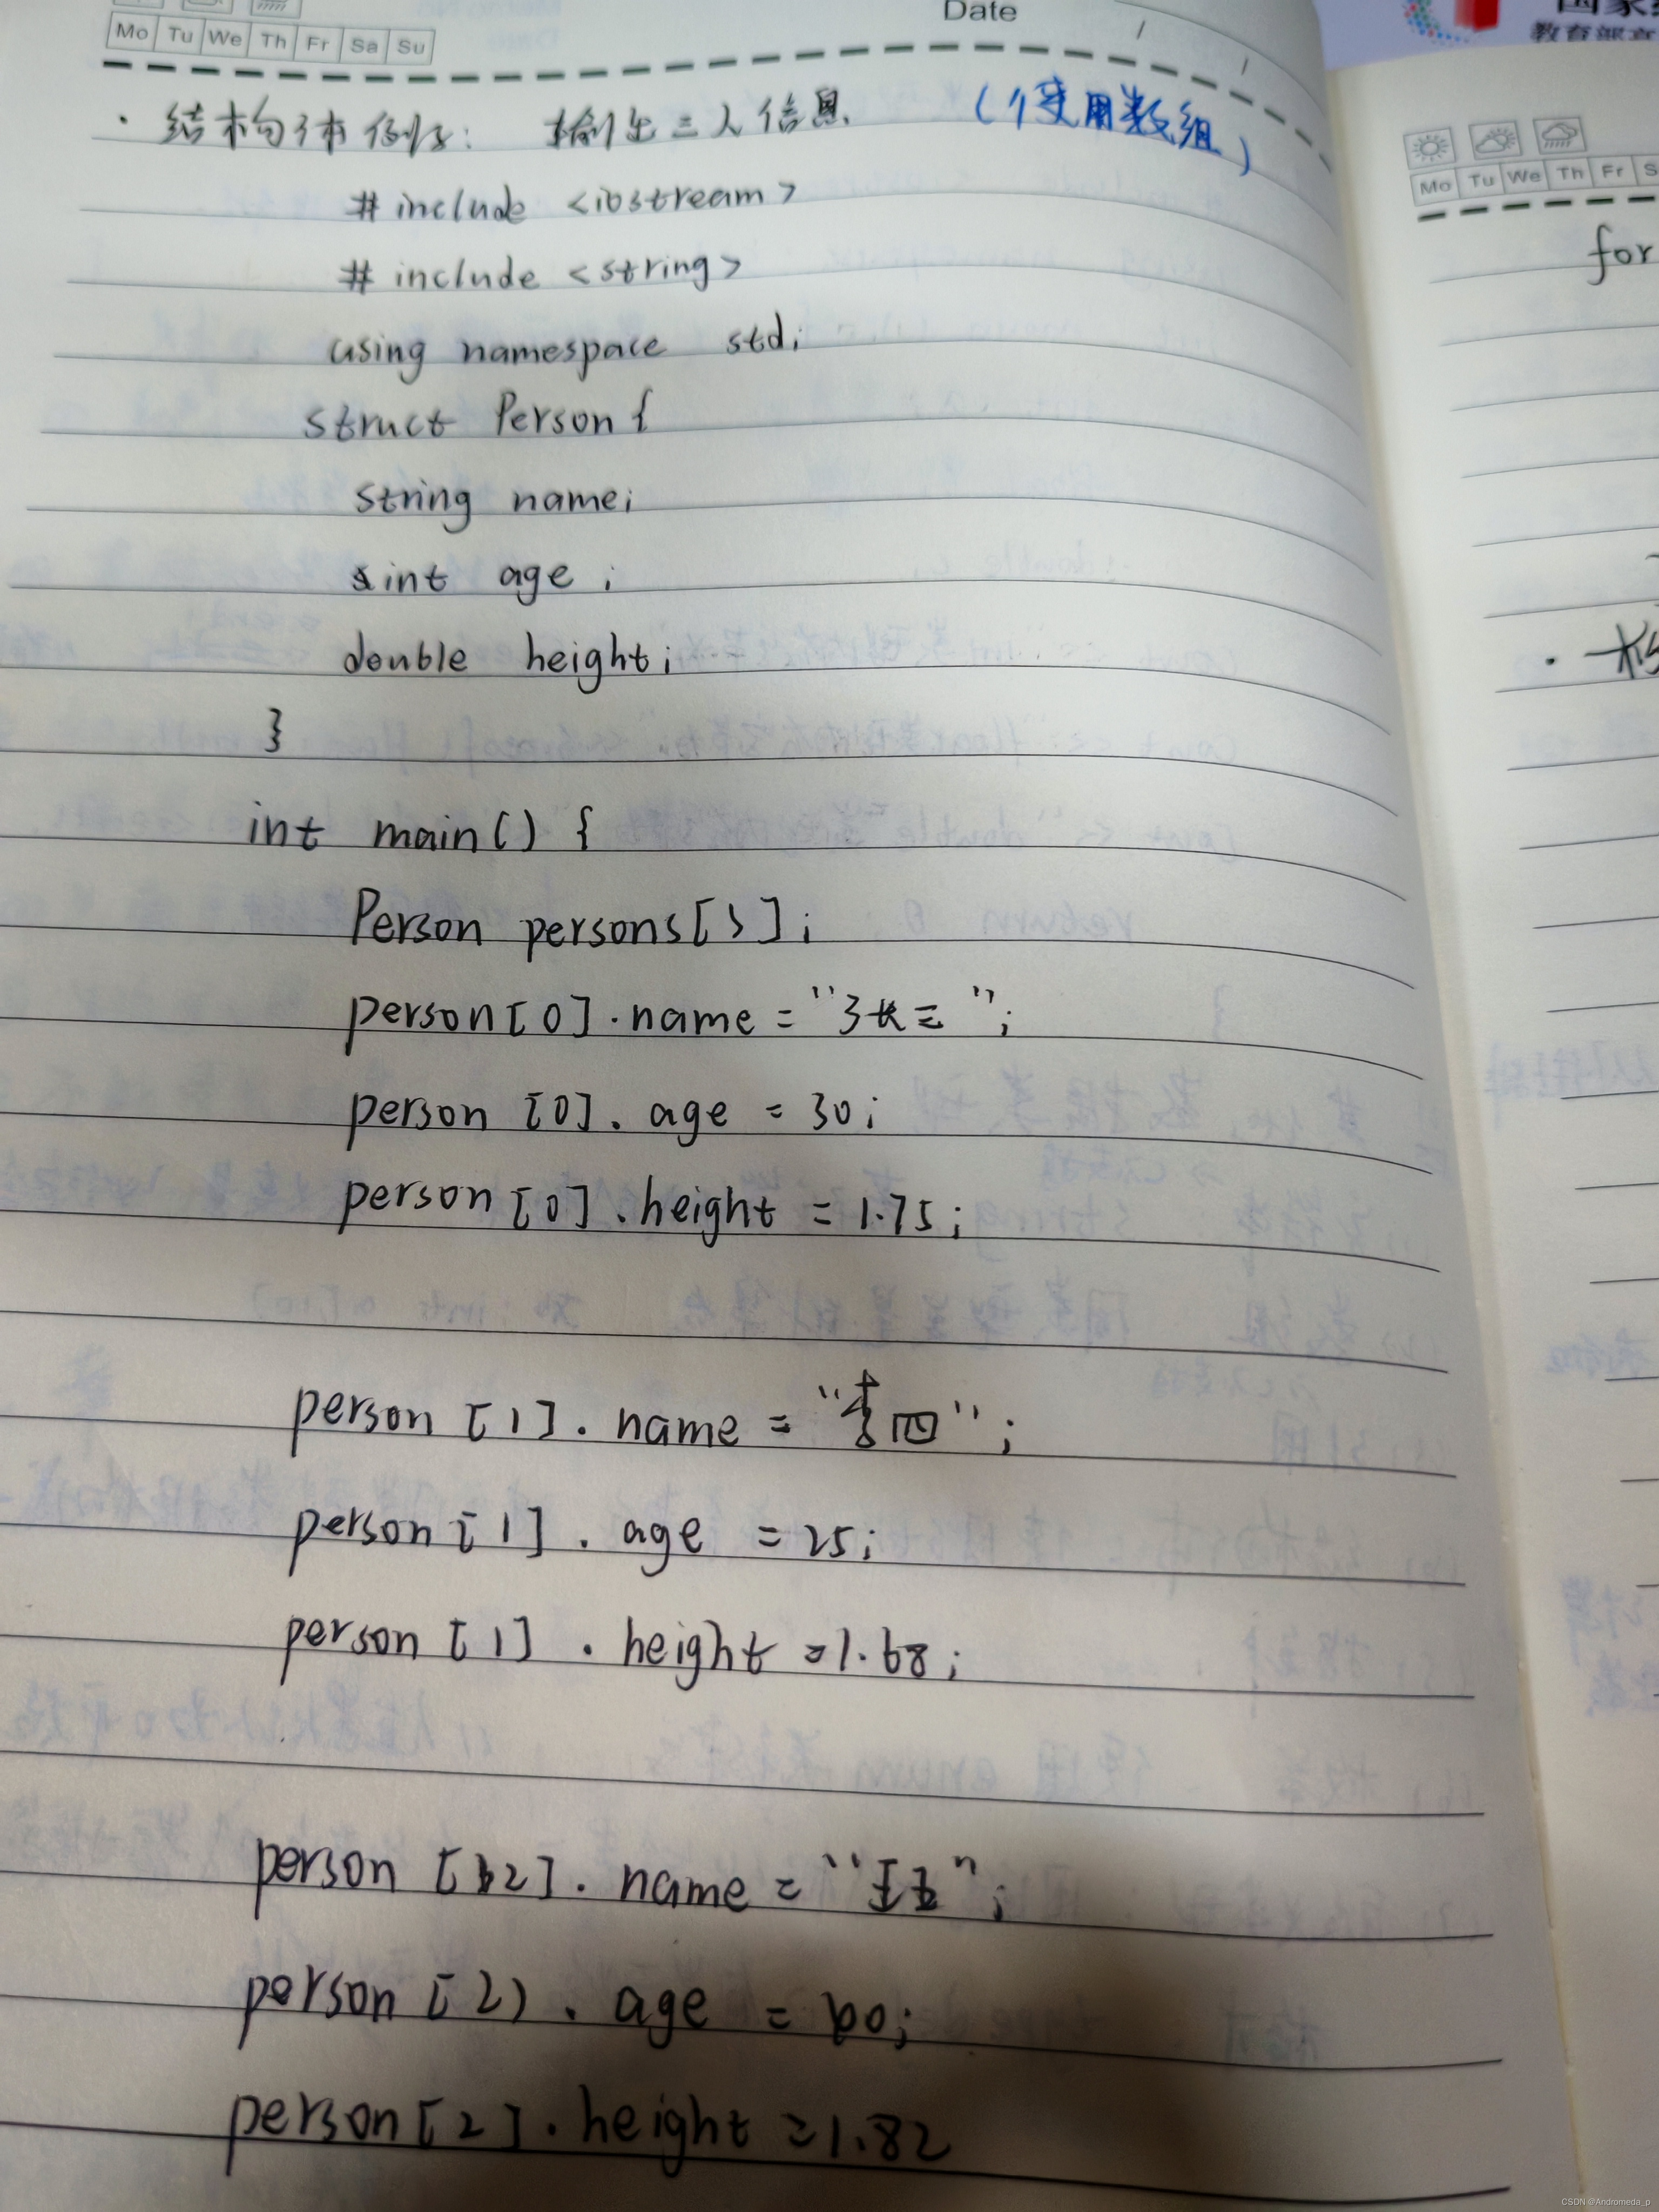 Date
Mo Tu We Th Fr Sa Su
· 结构体例子: 输出三人信息 (使用数组)
# include <iostream>
# include <string>
using namespace std;
struct Person {
string name;
int age ;
double height;
}
int main() {
Person persons[3];
person[0].name = "张三";
person [0]. age = 30;
person [0].height = 1.75;
person [1]. name = "李四";
person [1]. age = 25;
person [1] . height =1.68;
person [2]. name = "王五";
person [2) . age = 60;
person [2]. height =1.82
教育部
Mo Tu We Th Fr S
for
CSDN @Andromeda_p